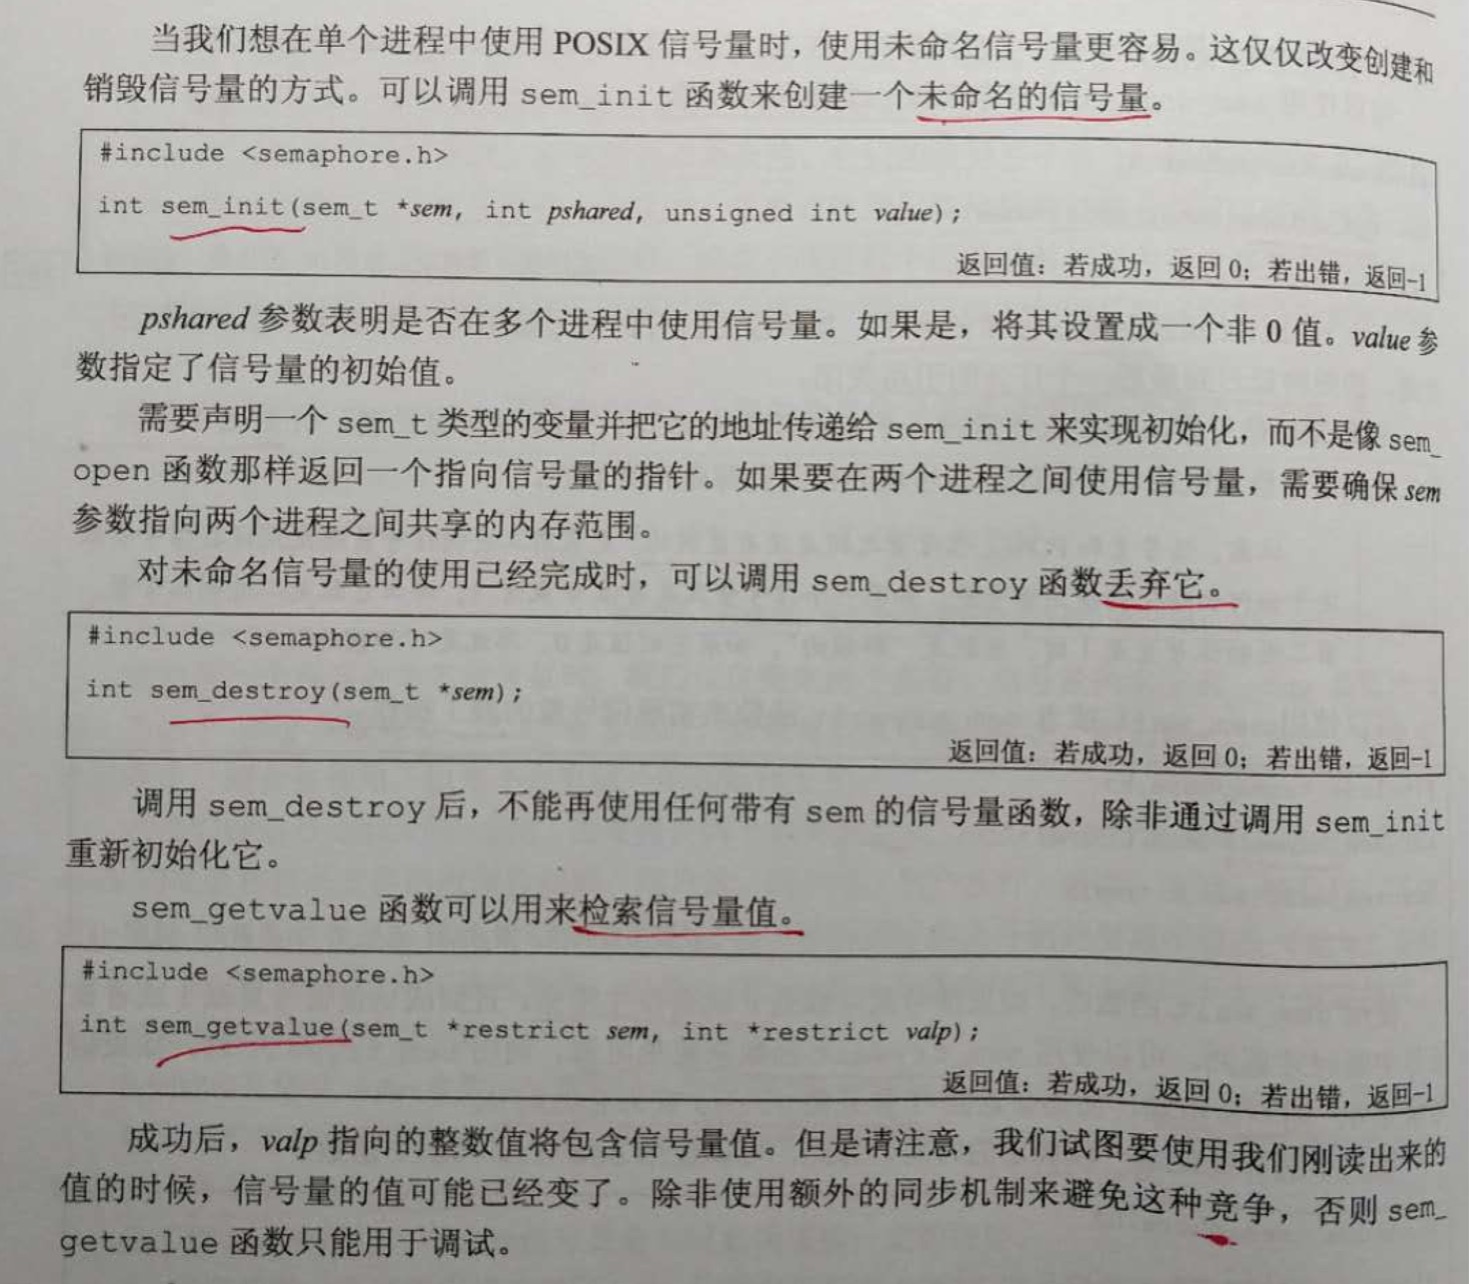 当我们想在单个进程中使用 POSIX 信号量时，使用未命名信号量更容易。这仅仅改变创建和
销毁信号量的方式。可以调用 sem_init 函数来创建一个未命名的信号量。
#include <semaphore.h>
int sem_init(sem_t *sem, int pshared, unsigned int value);
返回值：若成功，返回 0；若出错，返回-1
pshared 参数表明是否在多个进程中使用信号量。如果是，将其设置成一个非 0 值。value 参
数指定了信号量的初始值。
需要声明一个 sem_t 类型的变量并把它的地址传递给 sem_init 来实现初始化，而不是像 sem_
open 函数那样返回一个指向信号量的指针。如果要在两个进程之间使用信号量，需要确保 sem
参数指向两个进程之间共享的内存范围。
对未命名信号量的使用已经完成时，可以调用 sem_destroy 函数丢弃它。
#include <semaphore.h>
int sem_destroy(sem_t *sem);
返回值：若成功，返回 0；若出错，返回-1
调用 sem_destroy 后，不能再使用任何带有 sem 的信号量函数，除非通过调用 sem_init
重新初始化它。
sem_getvalue 函数可以用来检索信号量值。
#include <semaphore.h>
int sem_getvalue(sem_t *restrict sem, int *restrict valp);
返回值：若成功，返回 0；若出错，返回-1
成功后，valp 指向的整数值将包含信号量值。但是请注意，我们试图要使用我们刚读出来的
值的时候，信号量的值可能已经变了。除非使用额外的同步机制来避免这种竞争，否则 sem_
getvalue 函数只能用于调试。